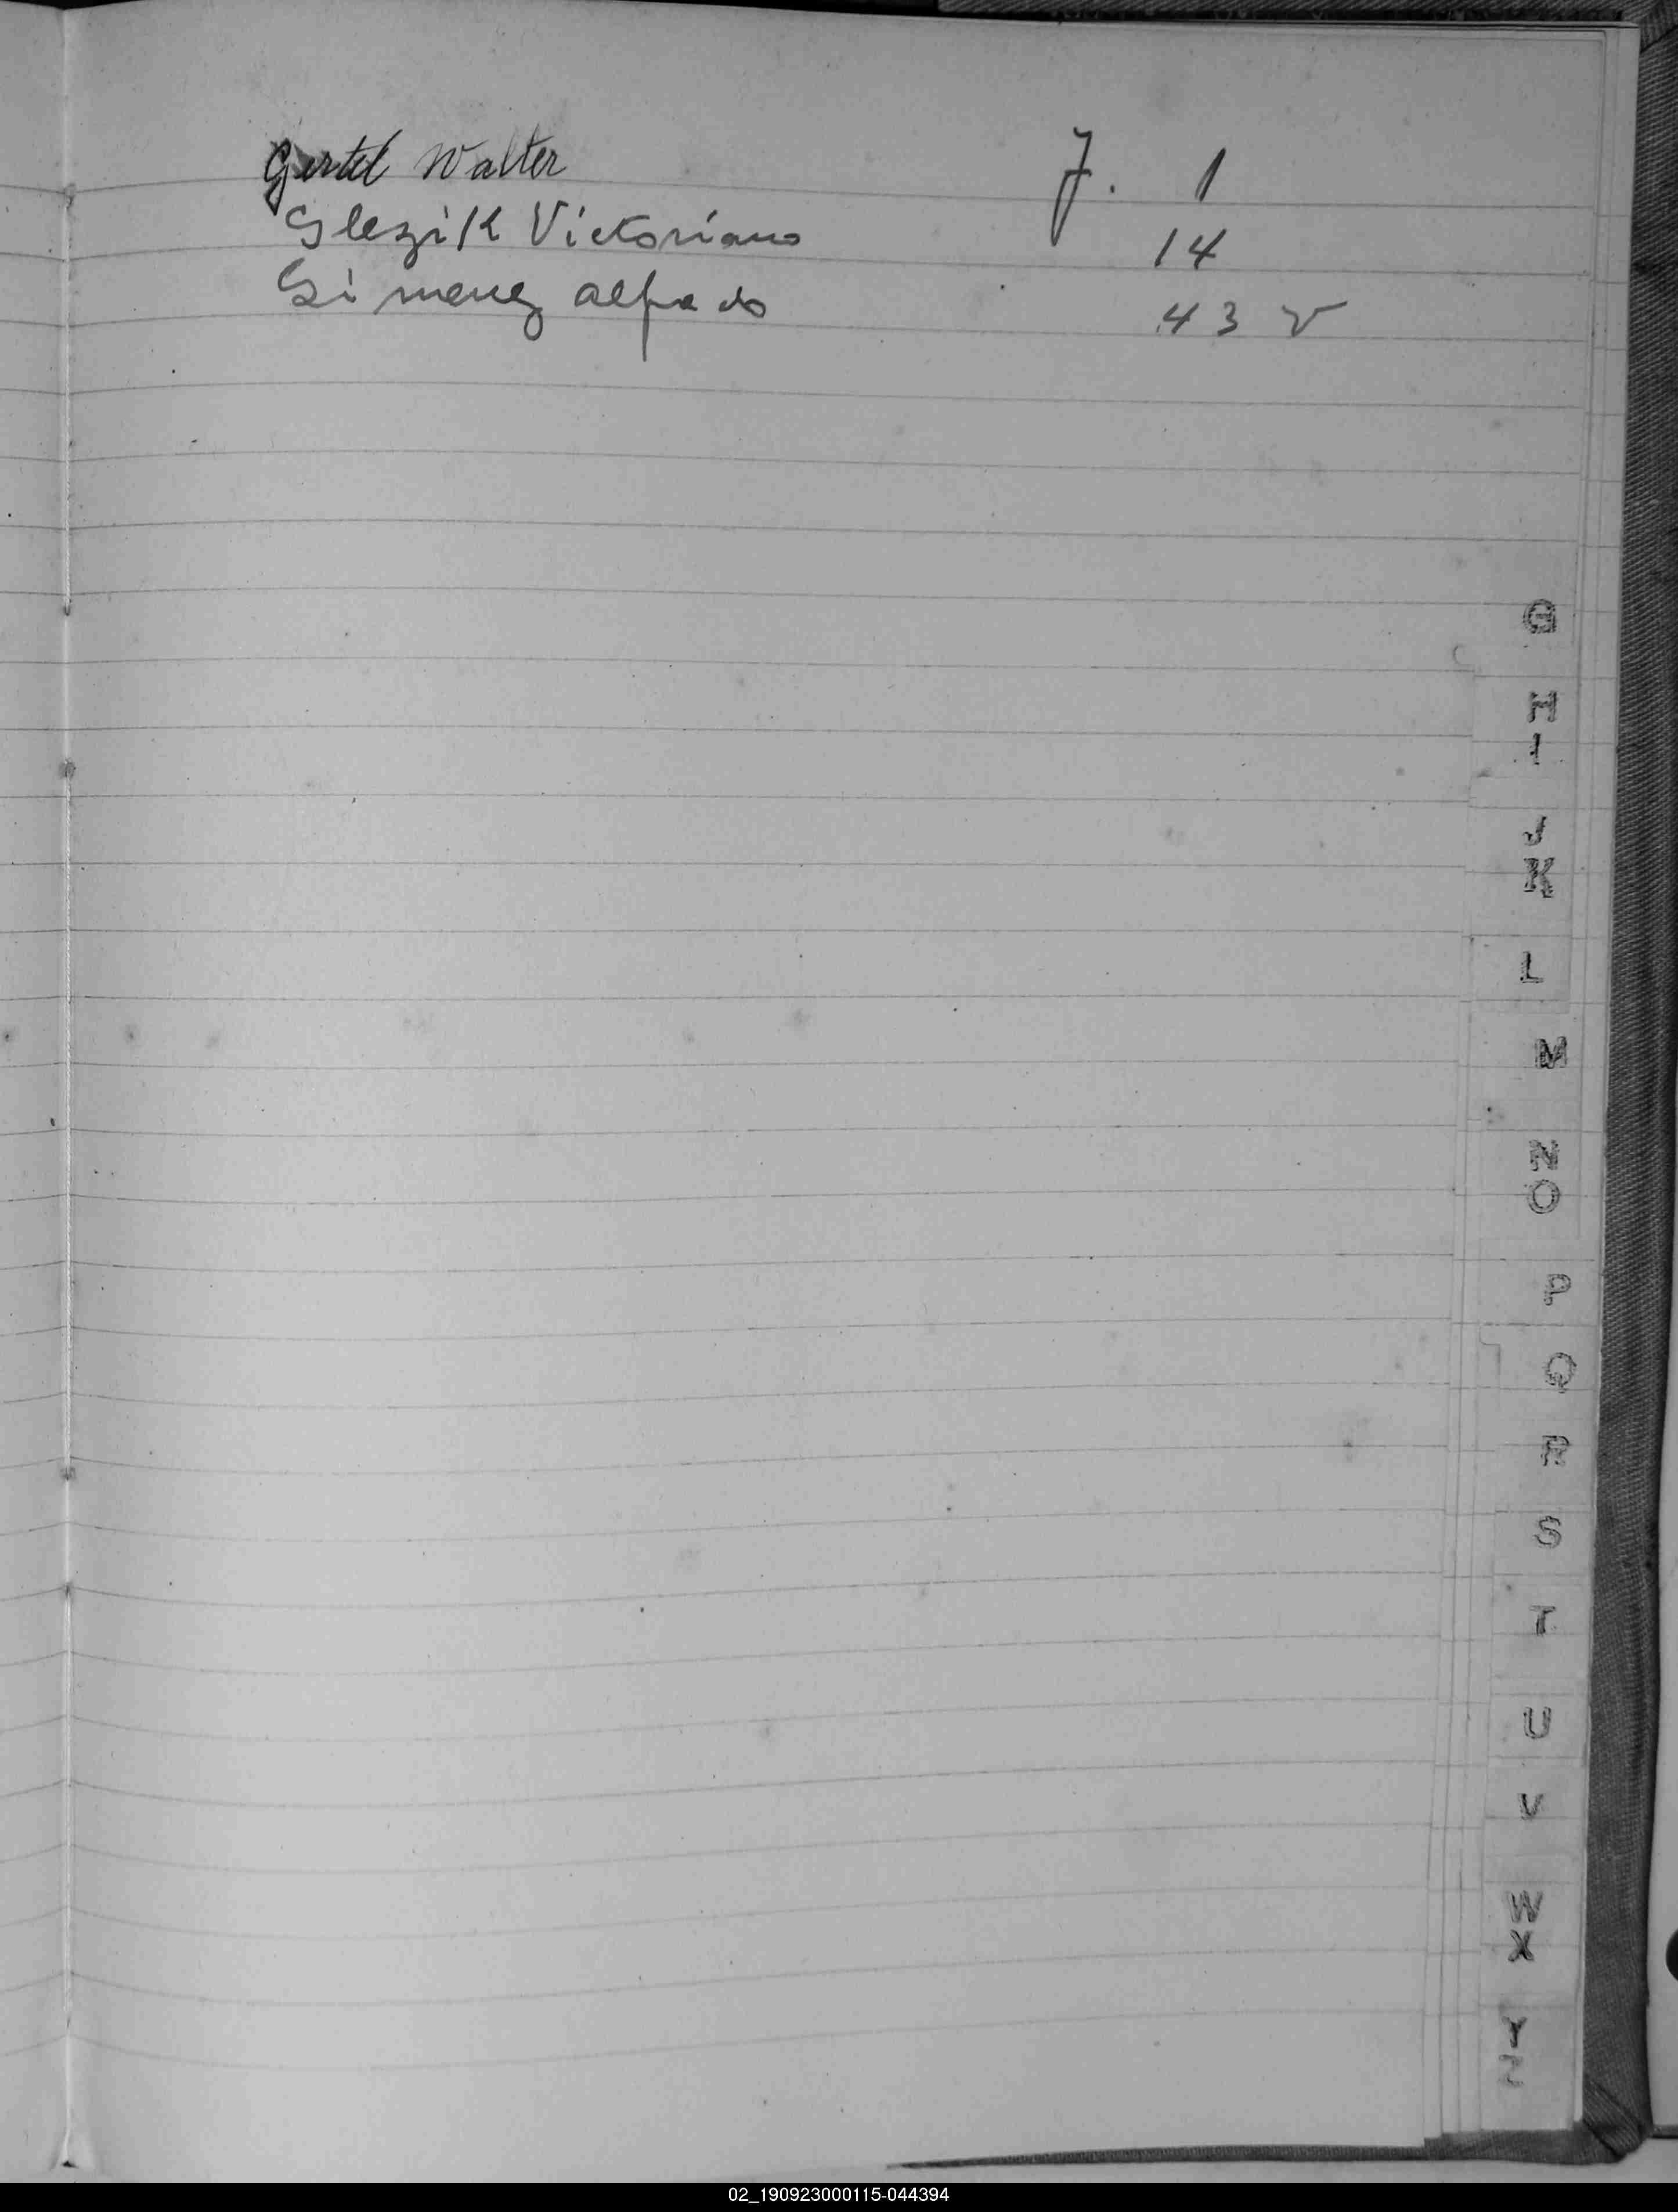 Gertel Walter f. 1
Glezik Victoriano 14
Gimenez Alfredo 43 v
G
H
I
J
K
L
M
N
O
P
Q
R
S
T
U
V
W
X
Y
Z
02_190923000115-044394